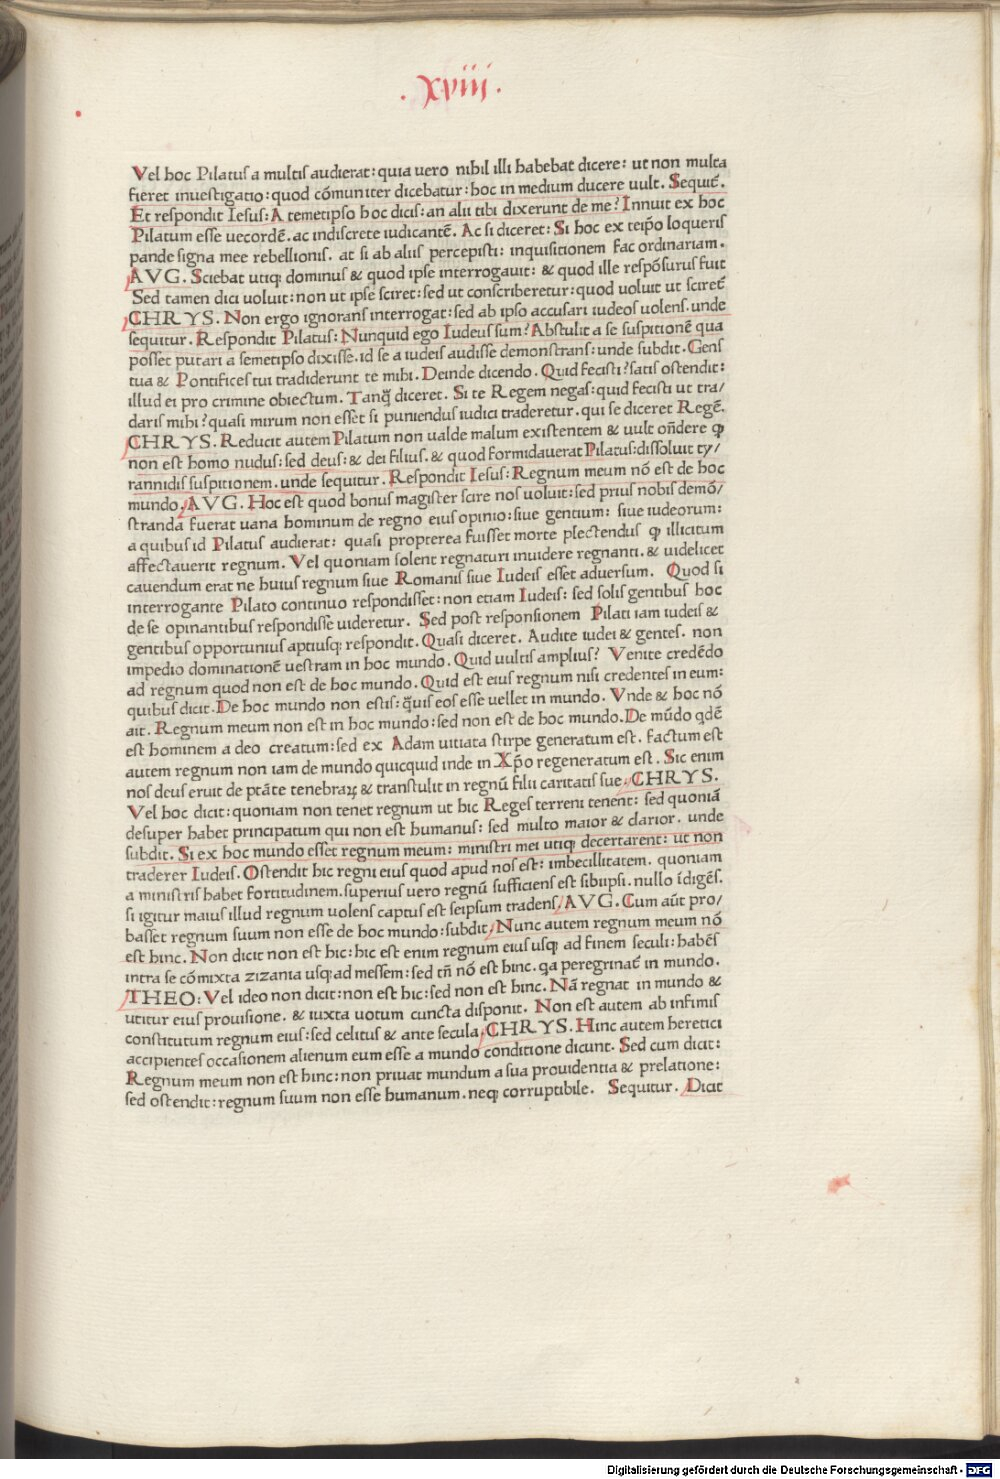 .xviij.
Vel hoc Pilatus a multis audierat: quia uero nihil illi habebat dicere: ut non multa
fieret inuestigatio: quod cōmuniter dicebatur: hoc in medium ducere uult. Sequit̄.
Et respondit Iesus: A temetipso hoc dicis: an alii tibi dixerunt de me? Innuit ex hoc
Pilatum esse uecordē. ac indiscrete iudicantē. Ac si diceret: Si hoc ex teip̄o loqueris
pande signa mee rebellionis. at si ab aliis percepisti: inquisitionem fac ordinariam.
AVG. Sciebat utiq; dominus & quod ipse interrogauit: & quod ille respōsurus fuit
Sed tamen dici uoluit: non ut ipse sciret: sed ut conscriberetur: quod uoluit ut sciret̄
CHRYS. Non ergo ignorans interrogat: sed ab ipso accusari iudeos uolens. unde
sequitur. Respondit Pilatus: Nunquid ego Iudeus sum? Abstulit a se suspitionē qua
posset putari a semetipso dixisse. id se a iudeis audisse demonstrans: unde subdit. Gens
tua & Pontifices tui tradiderunt te mihi. Deinde dicendo. Quid fecisti? satis ostendit:
illud ei pro crimine obiectum. Tanq̄ diceret. Si te Regem negas: quid fecisti ut tra/
daris mihi? quasi mirum non esset si puniendus iudici traderetur. qui se diceret Regē.
CHRYS. Reducit autem Pilatum non ualde malum existentem & uult on̄dere ꝙ
non est homo nudus: sed deus: & dei filius. & quod formidauerat Pilatus: dissoluit ty/
rannidis suspitionem. unde sequitur. Respondit Iesus: Regnum meum nō est de hoc
mundo. AVG. Hoc est quod bonus magister scire nos uoluit: sed prius nobis demō/
stranda fuerat uana hominum de regno eius opinio: siue gentium: siue iudeorum:
a quibus id Pilatus audierat: quasi propterea fuisset morte plectendus ꝙ illicitum
affectauerit regnum. Vel quoniam solent regnaturi inuidere regnanti. & uidelicet
cauendum erat ne huius regnum siue Romanis siue Iudeis esset aduersum. Quod si
interrogante Pilato continuo respondisset: non etiam Iudeis: sed solis gentibus hoc
de se opinantibus respondisse uideretur. Sed post responsionem Pilati iam iudeis &
gentibus opportunius aptiusq; respondit. Quasi diceret. Audite iudei & gentes. non
impedio dominationē uestram in hoc mundo. Quid uultis amplius? Venite credēdo
ad regnum quod non est de hoc mundo. Quid est eius regnum nisi credentes in eum:
quibus dicit. De hoc mundo non estis: q̄uis eos esse uellet in mundo. Vnde & hoc nō
ait. Regnum meum non est in hoc mundo: sed non est de hoc mundo. De mūdo qdē
est hominem a deo creatum: sed ex Adam uitiata stirpe generatum est. factum est
autem regnum non iam de mundo quicquid inde in Xp̄o regeneratum est. Sic enim
nos deus eruit de ptāte tenebraꝝ & transtulit in regnū filii caritatis sue. CHRYS.
Vel hoc dicit: quoniam non tenet regnum ut hic Reges terreni tenent: sed quoniā
desuper habet principatum qui non est humanus: sed multo maior & clarior. unde
subdit. Si ex hoc mundo esset regnum meum: ministri mei utiq; decertarent: ut non
traderer Iudeis. Ostendit hic regni eius quod apud nos est: imbecillitatem. quoniam
a ministris habet fortitudinem. superius uero regnū sufficiens est sibiipsi. nullo īdigēs.
si igitur maius illud regnum uolens captus est seipsum tradens. AVG. Cum aūt pro/
basset regnum suum non esse de hoc mundo: subdit. Nunc autem regnum meum nō
est hinc. Non dicit non est hic: hic est enim regnum eius usq; ad finem seculi: habēs
intra se cōmixta zizania usq; ad messem: sed tn̄ nō est hinc. qa peregrinat̄ in mundo.
THEO: Vel ideo non dicit: non est hic: sed non est hinc. Nā regnat in mundo &
utitur eius prouisione. & iuxta uotum cuncta disponit. Non est autem ab infimis
constitutum regnum eius: sed celitus & ante secula. CHRYS. Hinc autem heretici
accipientes occasionem alienum eum esse a mundo conditione dicunt. Sed cum dicit:
Regnum meum non est hinc: non priuat mundum a sua prouidentia & prelatione:
sed ostendit: regnum suum non esse humanum. neq; corruptibile. Sequitur. Dicit
Digitalisierung gefördert durch die Deutsche Forschungsgemeinschaft - DFG